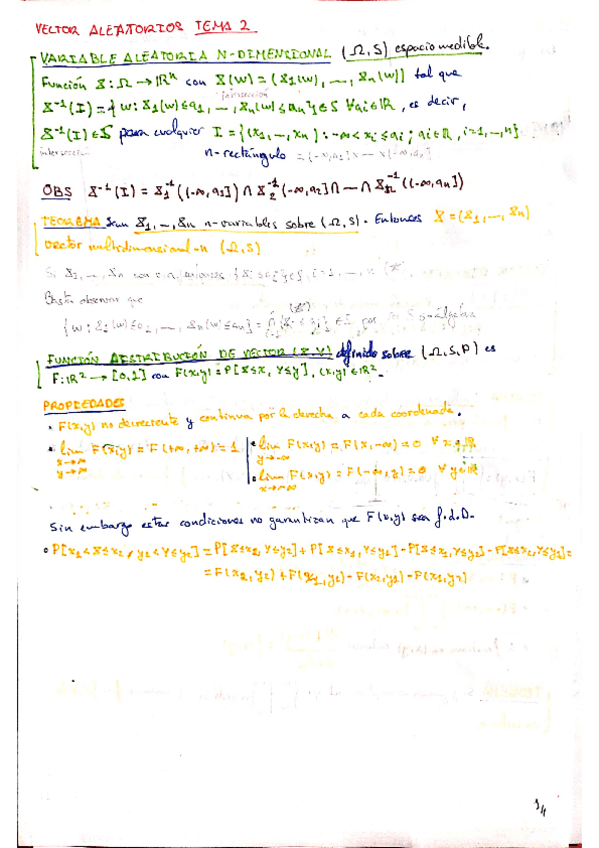 VECTOR ALEATORIOS TEMA 2
VARIABLE ALEATORIA N-DIMENSIONAL (Ω,S) espacio medible.
Función X: Ω → ℝⁿ con X(w) = (X₁(w), —, Xₙ(w)) tal que
intersección
X⁻¹(I) = { w: X₁(w) ≤ a₁, —, Xₙ(w) ≤ aₙ } ∈ S ∀ai ∈ ℝ, es decir,
X⁻¹(I) ∈ S para cualquier I = {(x₁, —, xₙ) : -∞ < xi ≤ ai ; ai ∈ ℝ, i=1, —, n}
intersección n-rectángulo = (-∞,a₁] x — x (-∞,aₙ]
OBS X⁻¹(I) = X₁⁻¹((-∞,a₁]) ∩ X₂⁻¹(-∞,a₂] ∩ — ∩ Xₙ⁻¹((-∞,aₙ])
TEOREMA Sean X₁, —, Xₙ n-variables sobre (Ω,S). Entonces X = (X₁, —, Xₙ)
vector multidimensional-n (Ω,S)
Si X₁, —, Xₙ son v.a. entonces {Xi ≤ ai} ∈ S, i=1, —, n (*)
Basta observar que
{w: X₁(w) ≤ a₁, —, Xₙ(w) ≤ aₙ} = ∩ {Xi ≤ ai} ∈ S por S σ-álgebra
FUNCIÓN DISTRIBUCIÓN DE VECTOR (X,Y) definido sobre (Ω,S,P) es
F: ℝ² → [0,1] con F(x,y) = P[X≤x, Y≤y], (x,y) ∈ ℝ².
PROPIEDADES
• F(x,y) no decreciente y continua por la derecha a cada coordenada.
• lim F(x,y) = F(+∞, +∞) = 1 • lim F(x,y) = F(x,-∞) = 0 ∀ x ∈ ℝ
x→∞ y→∞ y→-∞
• lim F(x,y) = F(-∞,y) = 0 ∀ y ∈ ℝ
x→-∞
Sin embargo estas condiciones no garantizan que F(x,y) sea f.d.D.
• P[x₁<X≤x₂, y₁<Y≤y₂] = P[X≤x₂, Y≤y₂] + P[X≤x₁, Y≤y₁] - P[X≤x₂, Y≤y₁] - P[X≤x₁, Y≤y₂] =
= F(x₂,y₂) + F(x₁,y₁) - F(x₂,y₁) - F(x₁,y₂)